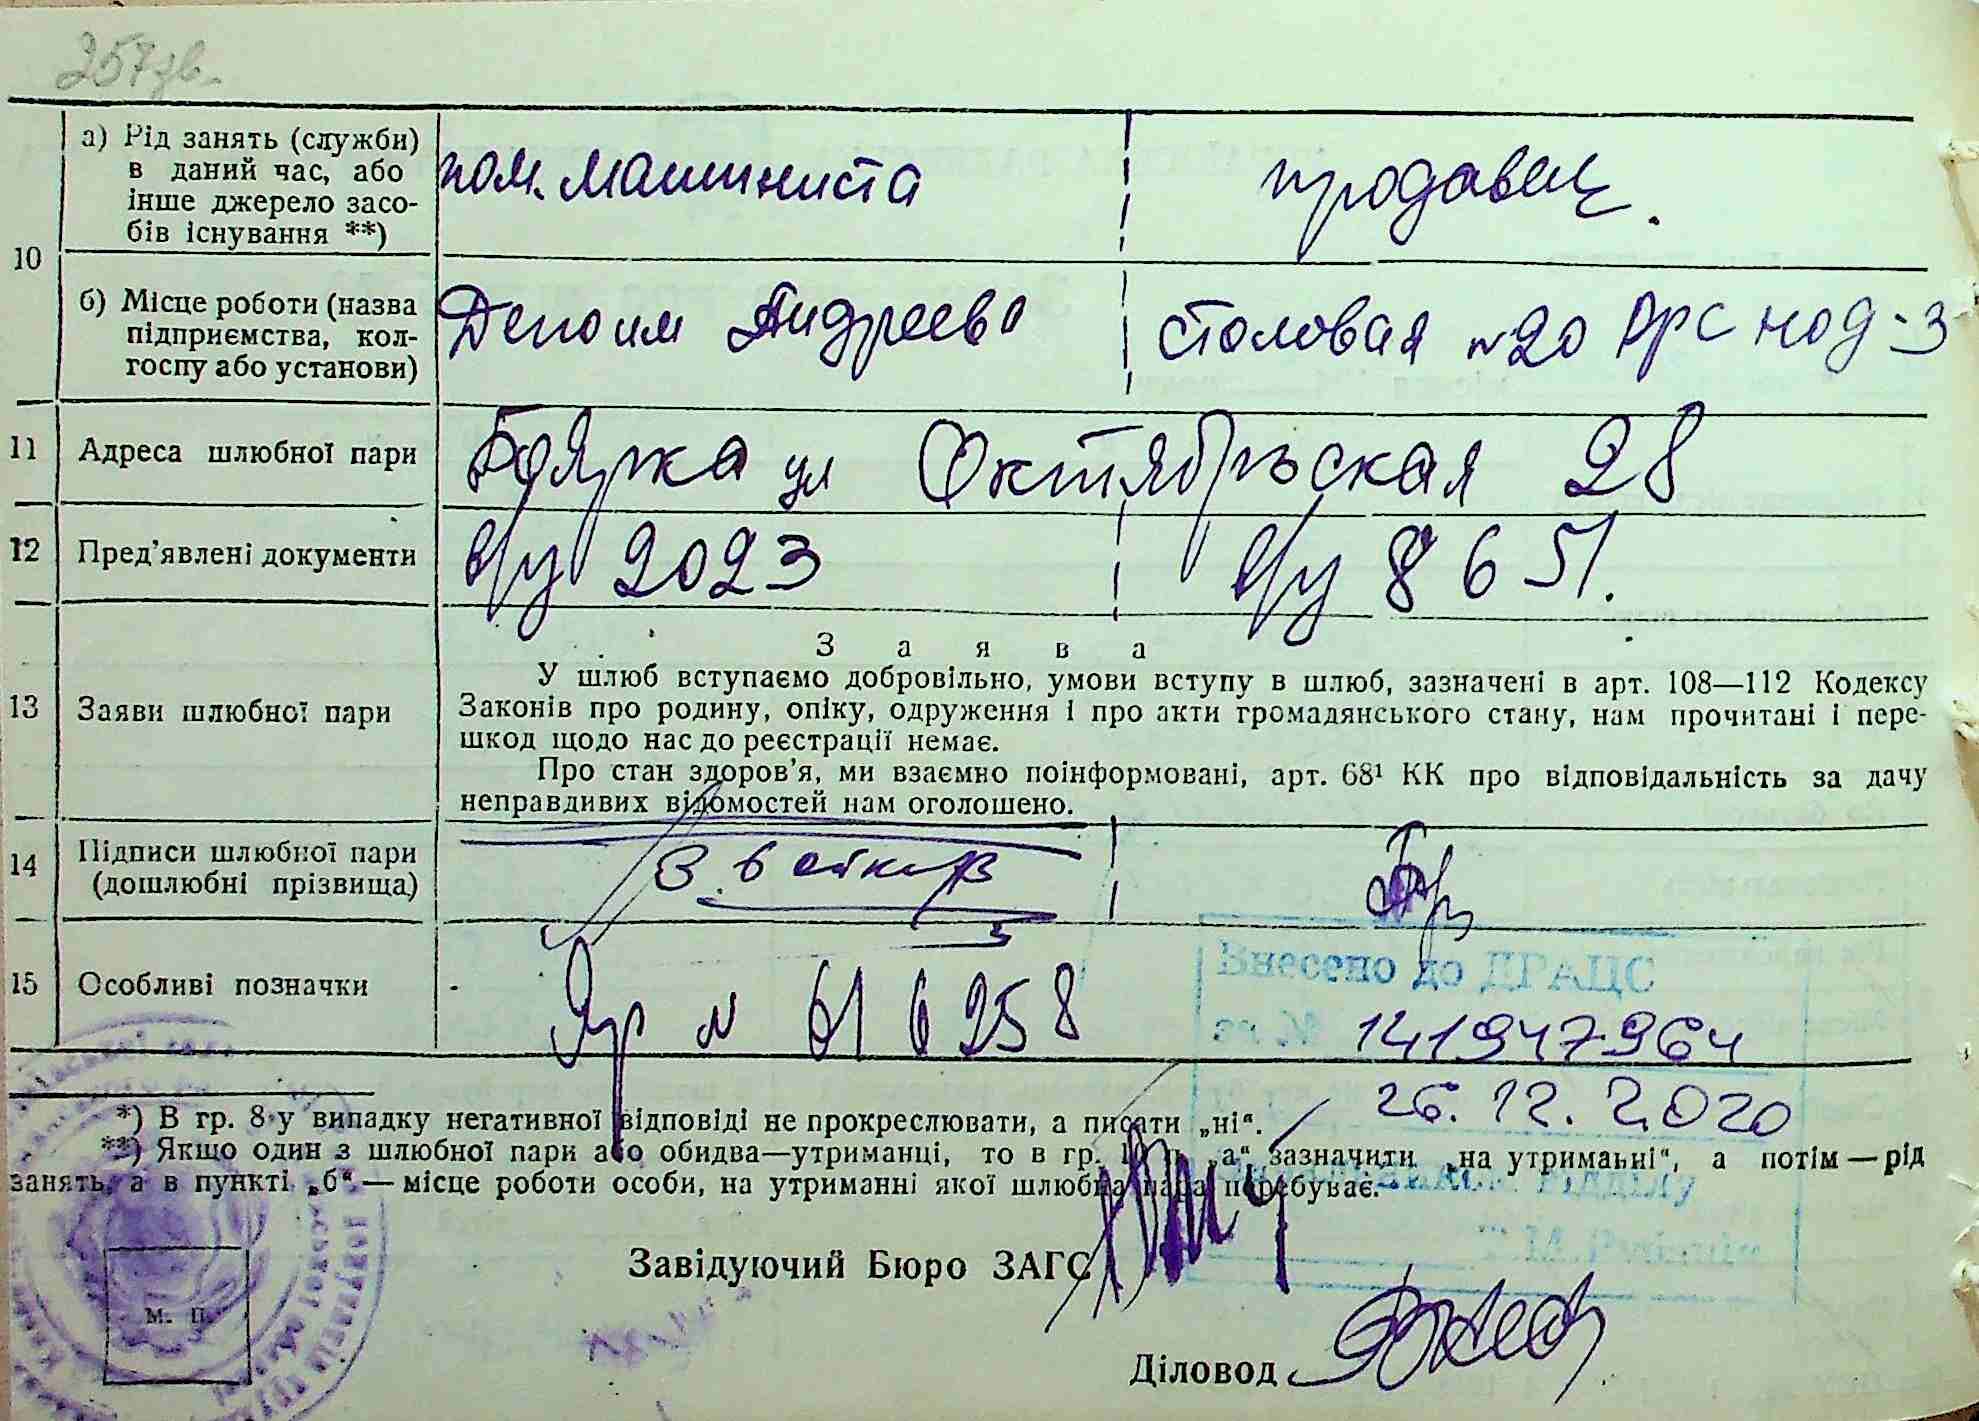 257зв.
10
а) Рід занять (служби)
в даний час, або
інше джерело засо-
бів існування **)
пом. машиниста
продавец.
б) Місце роботи (назва
підприємства, кол-
госпу або установи)
Депо им Андреева
столовая №20 ОРС НОД-3
11 Адреса шлюбної пари
Боярка ул Октябрьская 28
12 Пред'явлені документи
в/у 2023
в/у 8651.
13 Заяви шлюбної пари
Заява
У шлюб вступаємо добровільно, умови вступу в шлюб, зазначені в арт. 108—112 Кодексу
Законів про родину, опіку, одруження і про акти громадянського стану, нам прочитані і пере-
шкод щодо нас до реєстрації немає.
Про стан здоров'я, ми взаємно поінформовані, арт. 68¹ КК про відповідальність за дачу
неправдивих відомостей нам оголошено.
14 Підписи шлюбної пари
(дошлюбні прізвища)
15 Особливі позначки
N 616258
Внесено до ДРАЦС
за №
141947964
26.12.2020
*) В гр. 8 у випадку негативної відповіді не прокреслювати, а писати „ні“.
**) Якщо один з шлюбної пари або обидва—утриманці, то в гр. 10 п. „а“ зазначити „на утриманні“, а потім—рід
занять, а в пункті „б“—місце роботи особи, на утриманні якої шлюбна пара перебуває.
відділу
Завідуючий Бюро ЗАГС
М. П.
Діловод